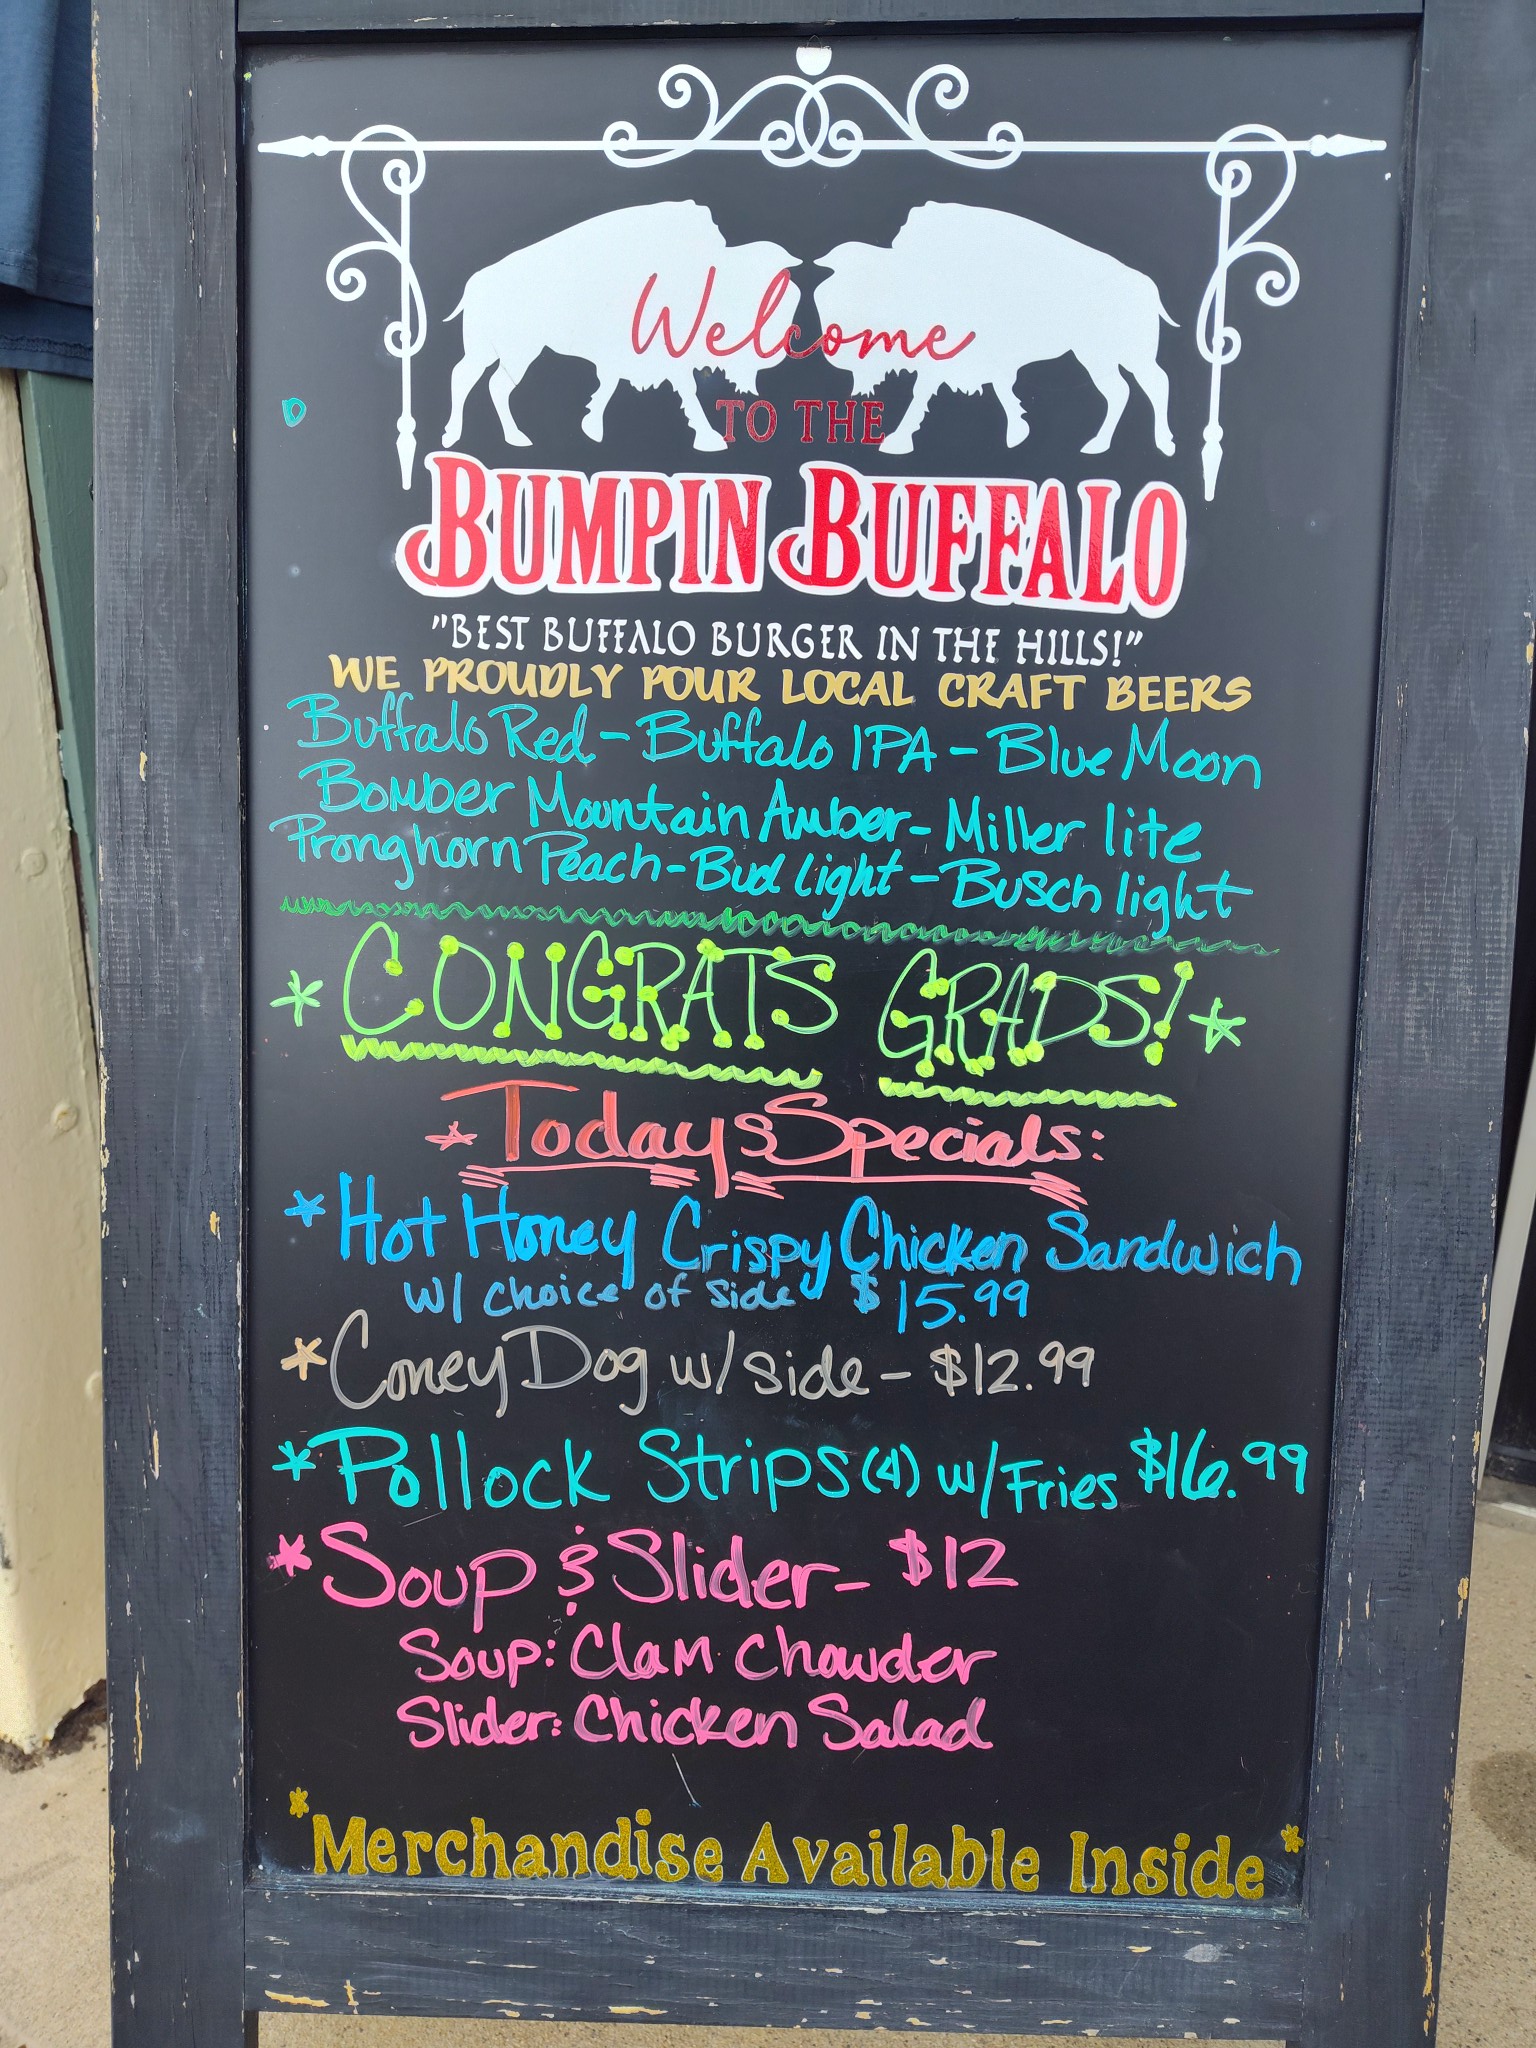 Welcome
TO THE
BUMPIN BUFFALO
"BEST BUFFALO BURGER IN THE HILLS!"
WE PROUDLY POUR LOCAL CRAFT BEERS
Buffalo Red - Buffalo IPA - Blue Moon
Bomber Mountain Amber - Miller lite
Pronghorn Peach - Bud light - Busch light
* CONGRATS GRADS! *
* Todays Specials:
* Hot Honey Crispy Chicken Sandwich
w/ choice of side $15.99
* Coney Dog w/ side - $12.99
* Pollock Strips (4) w/ Fries $16.99
* Soup & Slider - $12
Soup: Clam Chowder
Slider: Chicken Salad
*Merchandise Available Inside*